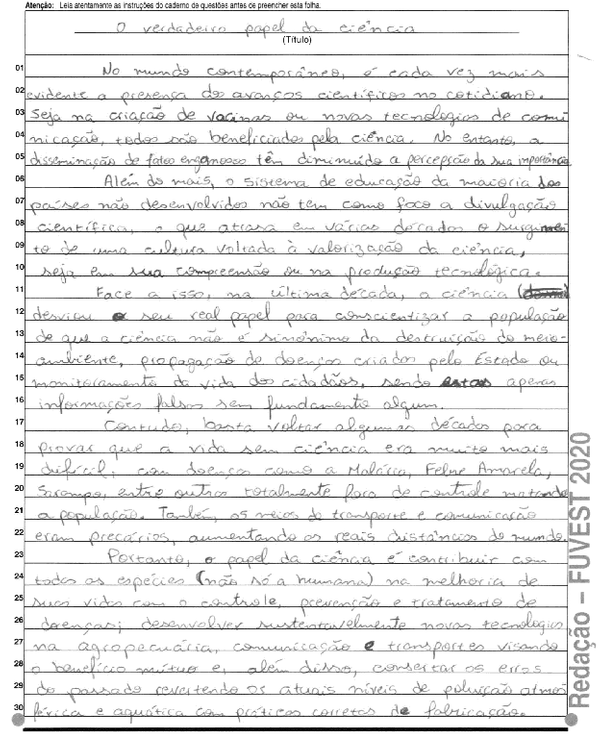 Atenção: Leia atentamente as instruções do caderno de questões antes de preencher esta folha.
O verdadeiro papel da ciência
(Título)
01 No mundo contemporâneo, é cada vez mais
02 evidente a presença de avanços científicos no cotidiano.
03 Seja na criação de vacinas ou novas tecnologias de comu
04 nicação, todos são beneficiados pela ciência. No entanto, a
05 disseminação de fatos enganosos têm diminuído a percepção da sua importância.
06 Além do mais, o sistema de educação da maioria dos
07 países não desenvolvidos não tem como foco a divulgação
08 científica, o que atrasa em várias décadas o surgimen
09 to de uma cultura voltada à valorização da ciência,
10 seja em sua compreensão ou na produção tecnológica.
11 Face a isso, na última década, a ciência
12 desviou o seu real papel para conscientizar a população
13 de que a ciência não é sinônimo da destruição do meio-
14 ambiente, propagação de doenças criadas pelo Estado ou
15 monitoramento da vida dos cidadãos, sendo estas apenas
16 informações falsas sem fundamento algum.
17 Contudo, basta voltar algumas décadas para
18 provar que a vida sem ciência era muito mais
19 difícil, com doenças como a Malária, Febre Amarela,
20 Sarampo, entre outros totalmente fora de controle matando
21 a população. Também, os meios de transporte e comunicação
22 eram precários, aumentando as reais distâncias do mundo.
23 Portanto, o papel da ciência é contribuir com
24 todas as espécies (não só a humana) na melhoria de
25 suas vidas com o controle, prevenção e tratamento de
26 doenças; desenvolver sustentavelmente novas tecnologias
27 na agropecuária, comunicação e transportes visando
28 o benefício mútuo e, além disso, consertar os erros
29 do passado revertendo os atuais níveis de poluição atmos
30 férica e aquática com práticas corretas de fabricação.
Redação – FUVEST 2020